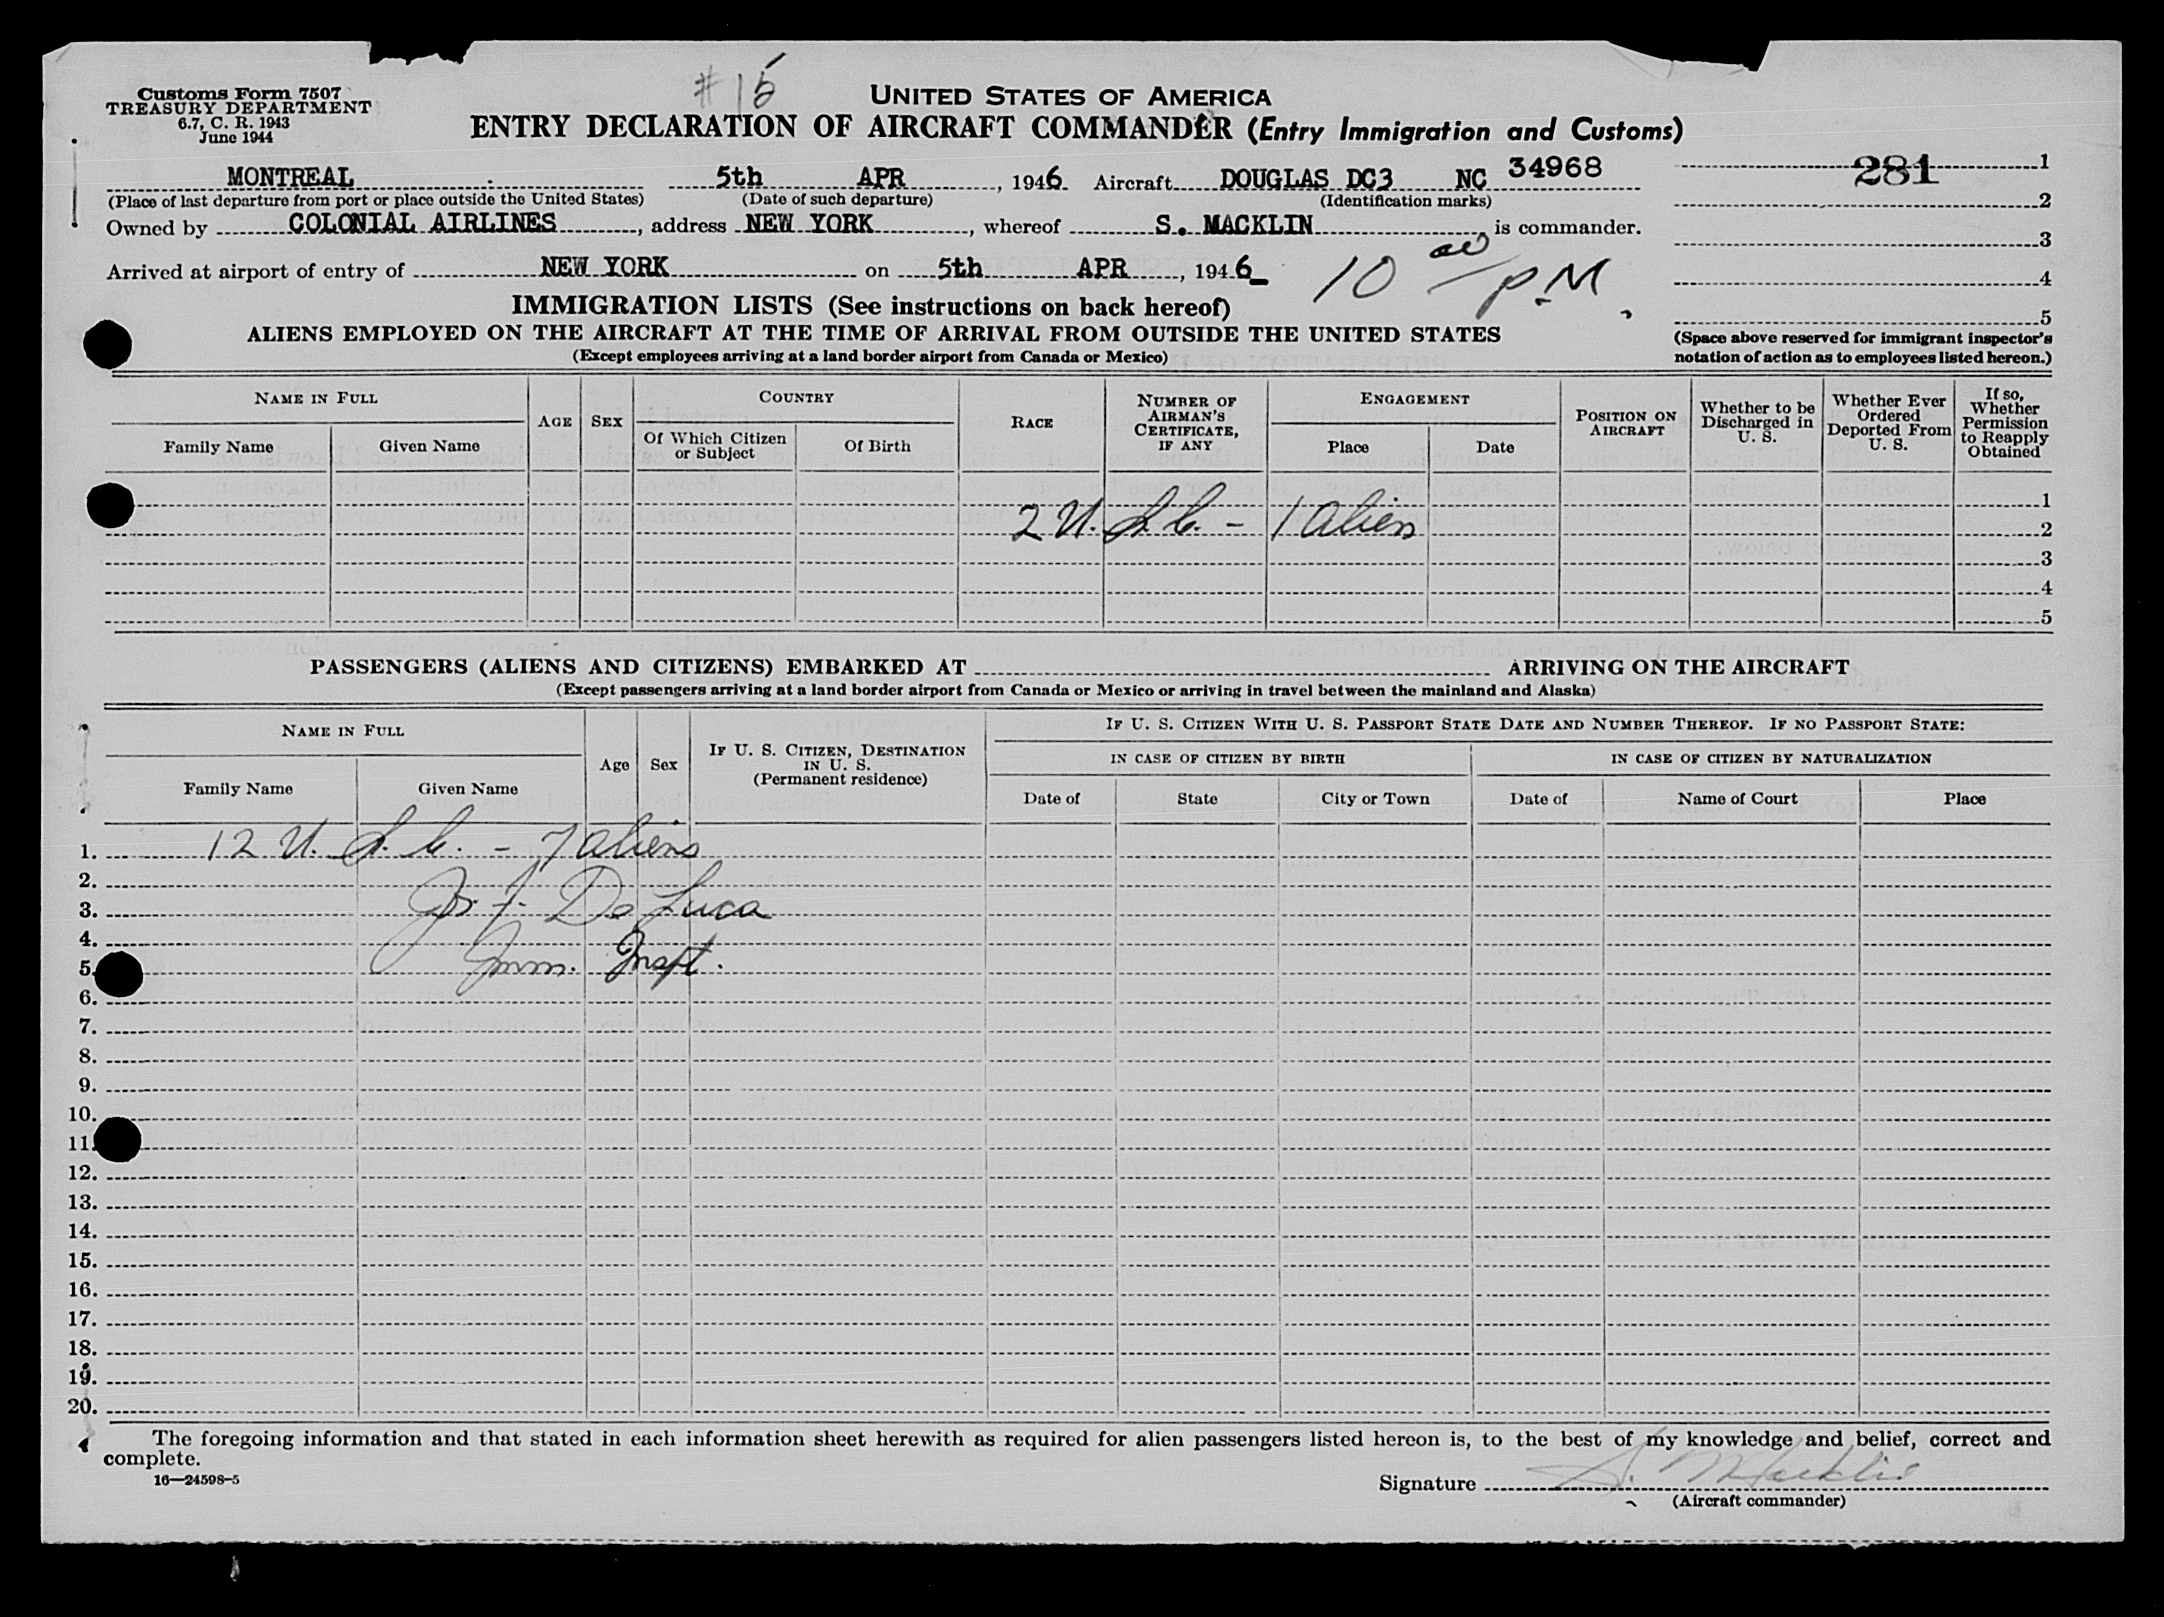 Customs Form 7507
TREASURY DEPARTMENT
6.7, C. R. 1943
June 1944
# 15
UNITED STATES OF AMERICA
ENTRY DECLARATION OF AIRCRAFT COMMANDER (Entry Immigration and Customs)
MONTREAL 5th APR, 1946 Aircraft DOUGLAS DC3 NC 34968
(Place of last departure from port or place outside the United States) (Date of such departure) (Identification marks)
Owned by COLONIAL AIRLINES, address NEW YORK, whereof S. MACKLIN is commander.
Arrived at airport of entry of NEW YORK on 5th APR, 1946 10 00 P.M.
281 1
2
3
4
5
(Space above reserved for immigrant inspector's
notation of action as to employees listed hereon.)
IMMIGRATION LISTS (See instructions on back hereof)
ALIENS EMPLOYED ON THE AIRCRAFT AT THE TIME OF ARRIVAL FROM OUTSIDE THE UNITED STATES
(Except employees arriving at a land border airport from Canada or Mexico)
NAME IN FULL
Family Name Given Name
AGE SEX
COUNTRY
Of Which Citizen or Subject Of Birth
RACE
NUMBER OF AIRMAN'S CERTIFICATE, IF ANY
ENGAGEMENT
Place Date
POSITION ON AIRCRAFT
Whether to be Discharged in U. S.
Whether Ever Ordered Deported From U. S.
If so, Whether Permission to Reapply Obtained
1
2 U. S. C. - 1 Alien 2
3
4
5
PASSENGERS (ALIENS AND CITIZENS) EMBARKED AT ARRIVING ON THE AIRCRAFT
(Except passengers arriving at a land border airport from Canada or Mexico or arriving in travel between the mainland and Alaska)
NAME IN FULL
Family Name Given Name
Age Sex
IF U. S. CITIZEN, DESTINATION IN U. S. (Permanent residence)
IF U. S. CITIZEN WITH U. S. PASSPORT STATE DATE AND NUMBER THEREOF. IF NO PASSPORT STATE:
IN CASE OF CITIZEN BY BIRTH IN CASE OF CITIZEN BY NATURALIZATION
Date of State City or Town Date of Name of Court Place
1. 12 U. S. C. - 7 aliens
2.
3. De Luca
4.
5. Imm. Inspt.
6.
7.
8.
9.
10.
11.
12.
13.
14.
15.
16.
17.
18.
19.
20.
The foregoing information and that stated in each information sheet herewith as required for alien passengers listed hereon is, to the best of my knowledge and belief, correct and
complete.
16—24598-5
Signature S. Macklin
(Aircraft commander)